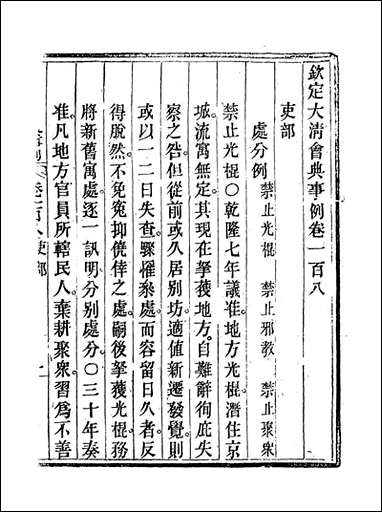 欽定大清會典事例卷一百八
吏部
處分例 禁止光棍 禁止邪教 禁止聚衆
禁止光棍○乾隆七年議准地方光棍潛住京
城流寓無定其現在拏獲地方自難辭徇庇失
察之咎但從前或久居別坊適值新遷發覺則
或以一二日失查驟懼㕘處而容留日久者反
得脫然不免冤抑僥倖之處嗣後拏獲光棍務
將新舊寓處逐一訊明分別處分○三十年奏
准凡地方官員所轄民人棄耕聚衆習爲不善
卷一百八吏部